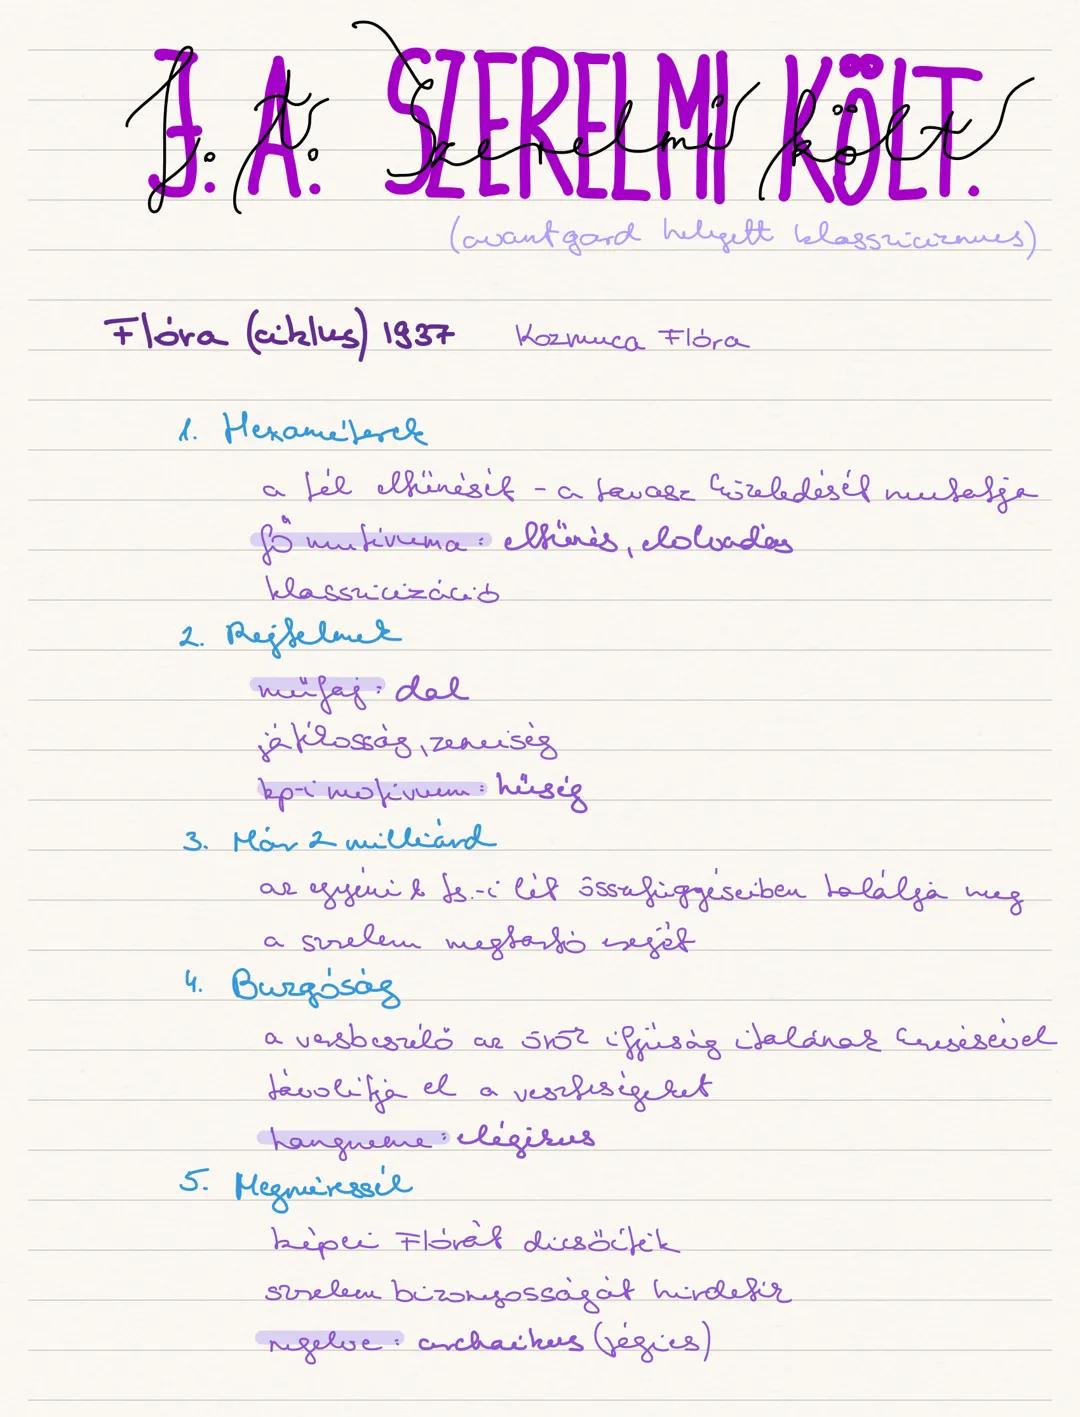 J. A. SZERELMI KÖLT.
J. A. Szerelmi költ
(avantgard helyett klasszicizmus)
Flóra (ciklus) 1937 Kozmuca Flóra
1. Hexaméterek
a tél eltűnését - a tavasz közeledését mutatja
fő motívuma: eltűnés, elolvadás
klasszicizáció
2. Rejtelmek
műfaj: dal
játékosság, zeneiség
kp-i motívum: hűség
3. Már 2 milliárd
az egyéni & ts.-i lét összefüggéseiben találja meg
a szerelem megtartó erejét
4. Buzgóság
a versbeszélő az örök ifjúság italának keresésével
távolítja el a veszteségeket
hangneme: elégikus
5. Megméressél
képei Flórát dicsőítik
szerelem bizonyosságát hirdetik
nyelve: archaikus (régies)